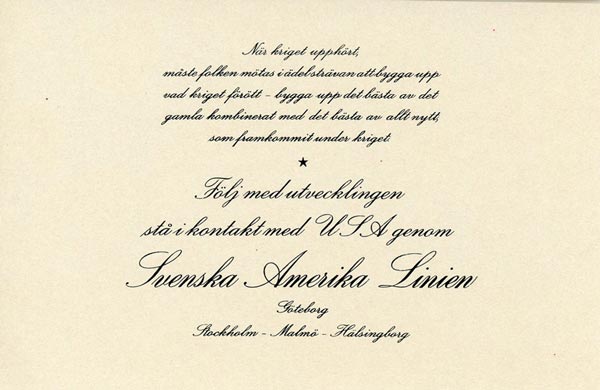 När kriget upphört,
måste folken mötas i ädel strävan att bygga upp
vad kriget förött - bygga upp det bästa av det
gamla kombinerat med det bästa av allt nytt,
som framkommit under kriget.
★
Följ med utvecklingen
stå i kontakt med USA genom
Svenska Amerika Linien
Göteborg
Stockholm - Malmö - Hälsingborg